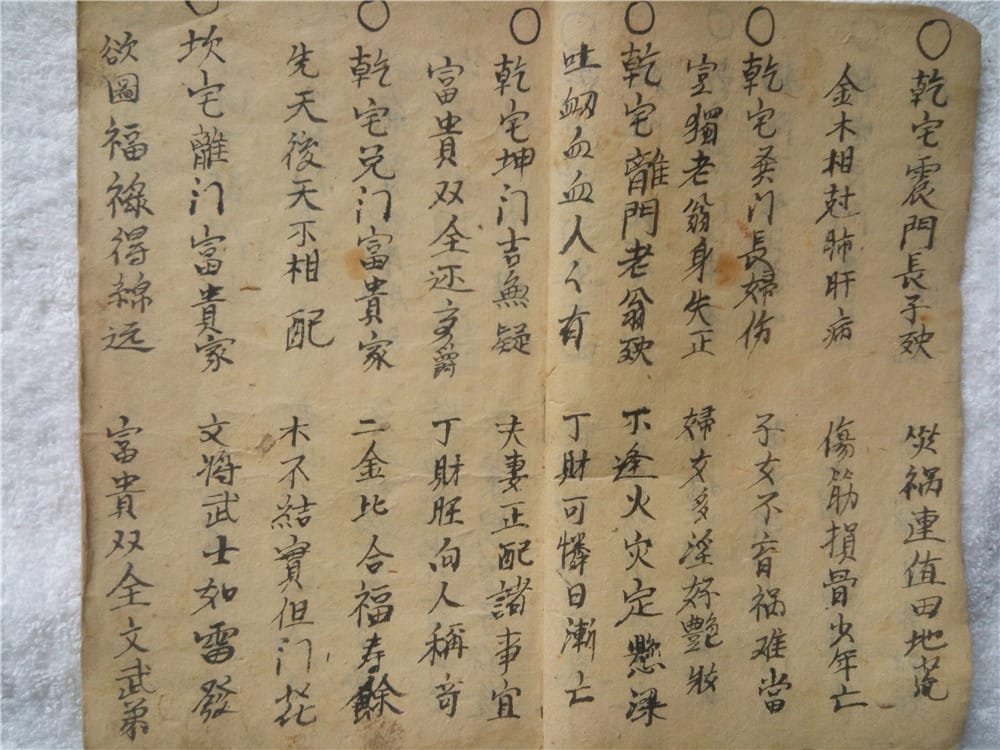 〇乾宅震門長子殃 災祸連值田地荒
金木相尅肺肝病 傷筋損骨少年亡
〇乾宅巽门長婦伤 子女不育祸难當
空獨老翁身失正 婦女多淫好艷妝
〇乾宅離門老翁殃 不逢火灾定懸梁
吐衂血血人人有 丁財可憐日漸亡
〇乾宅坤门吉無疑 夫妻正配諸事宜
富貴双全还多爵 丁財旺向人稱奇
〇乾宅兑门富貴家 二金比合福寿餘
先天後天不相配 木不結實但门花
〇坎宅離门富貴家 文將武士如雷發
欲圖福祿得綿远 富貴双全文武弟